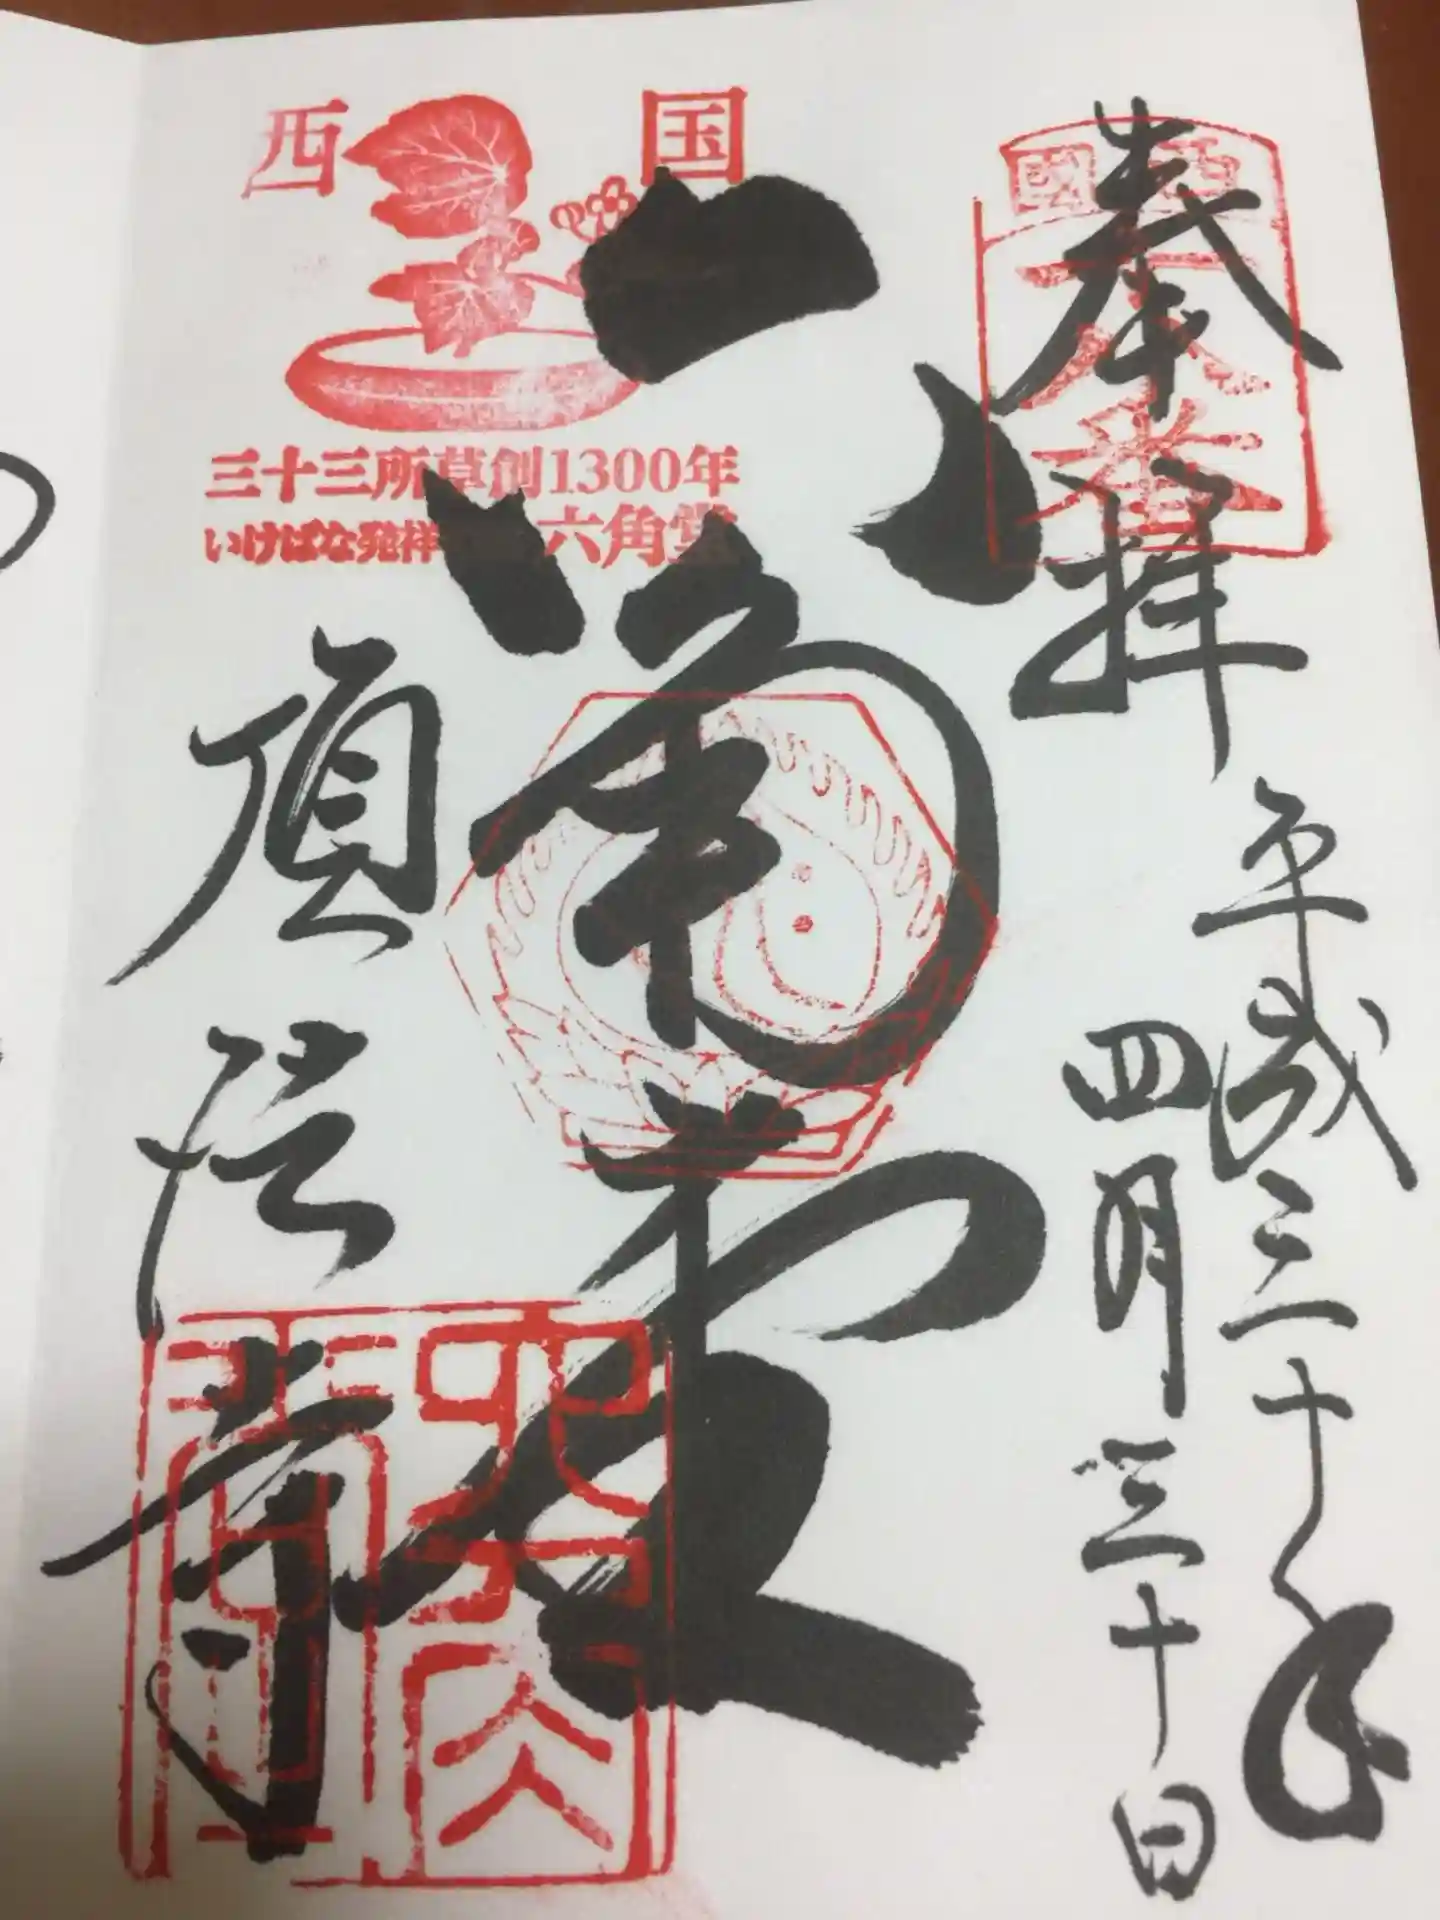 奉拝
西國
十八番
平成三十年
四月三十日
六角堂
西国
三十三所草創1300年
いけばな発祥
六角堂
頂法寺